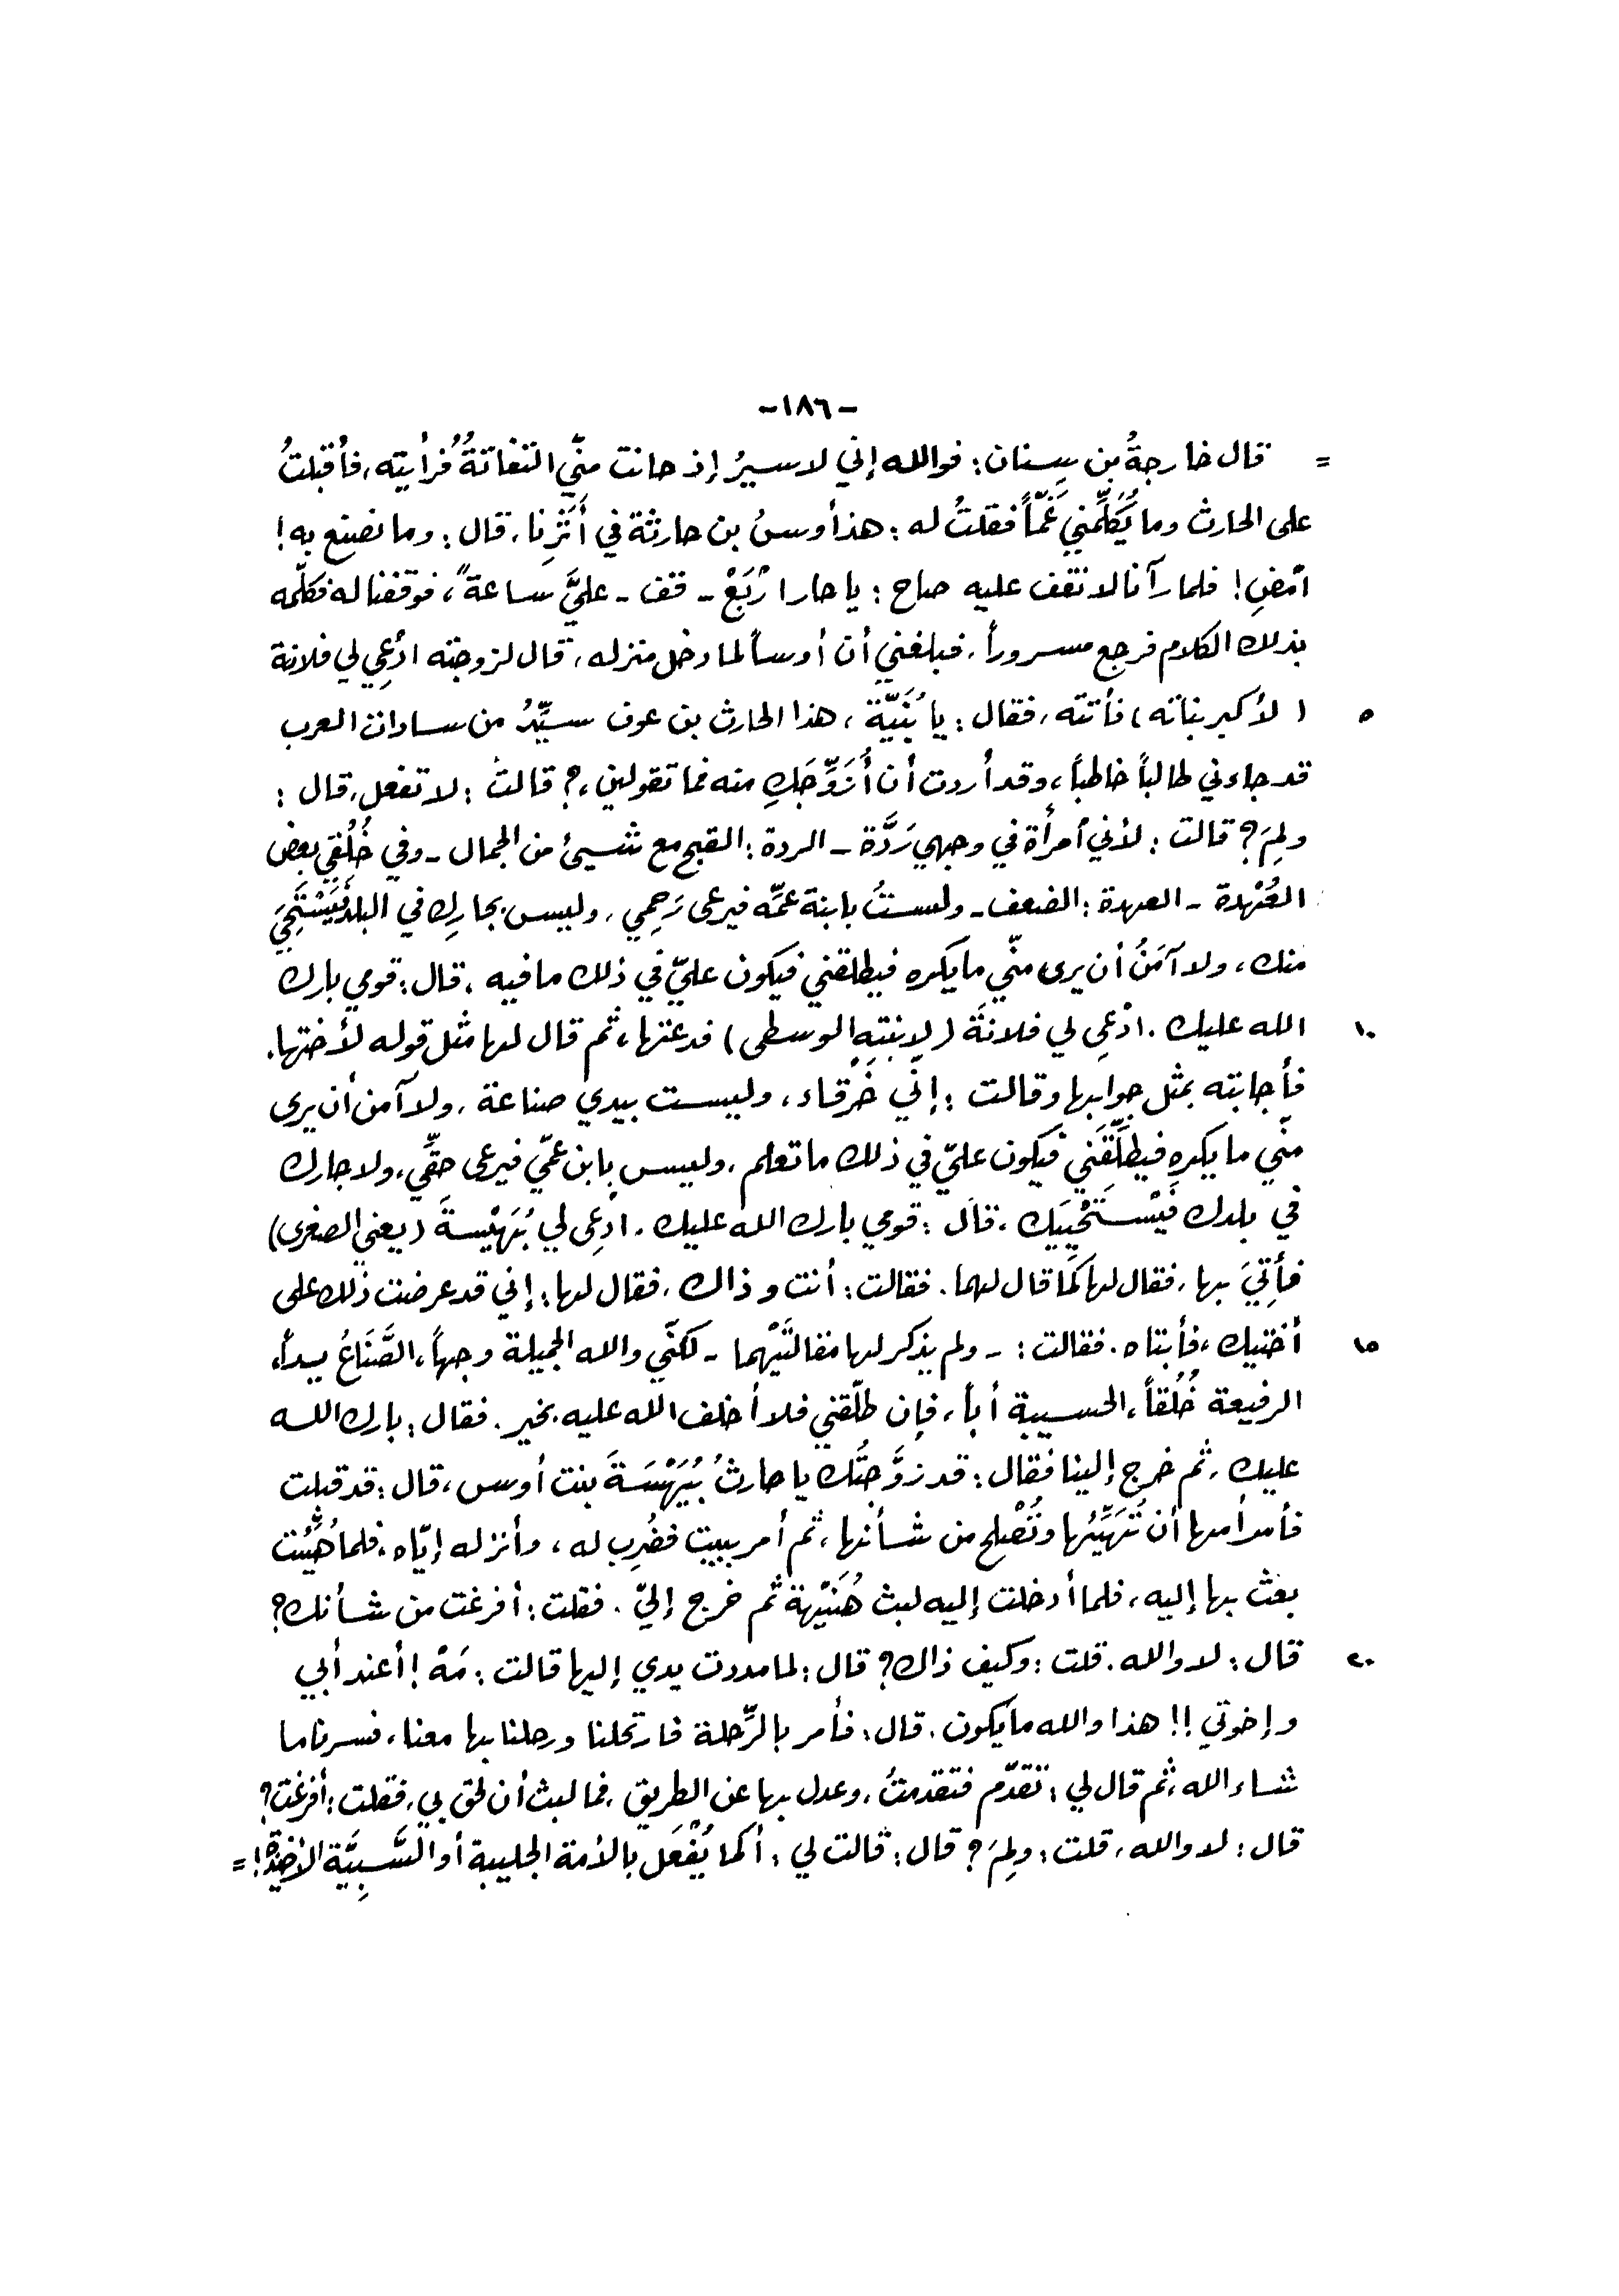 -١٨٦-
= قال خارجةُ بن سِنان: فوالله إني لاسيرُ إذ حانت منّي التفاتةُ فرأيته، فأقبلتُ
على الحارث وما يُكَلِّمني غَمّاً فقلتُ له: هذا أوسُ بن حارثة في أَثَرِنا، قال: وما نصنع به!
امْضِ! فلما رآنا لا نقف عليه صاح: يا حار ارْبَعْ - قف - عليَّ ساعةً، فوقفنا له فكلّمه
بذلك الكلام فرجع مسروراً، فبلغني أن أوساً لما دخل منزله، قال لزوجته ادْعِي لي فلانة
٥ (لأكبر بناته) فأتته، فقال: يا بُنَيّة، هذا الحارث بن عوف سيِّدُ من سادات العرب
قد جاءني طالباً خاطباً، وقد أردت أن أُزَوِّجَكِ منه فما تقولين،؟ قالت: لا تفعل، قال:
ولِمَ؟ قالت: لأني أمرأة في وجهي رَدَّة - الردة: القبح مع شيئ من الجمال - وفي خُلُقي بعض
العُهْدة - العهدة: الضعف - ولستُ بابنة عمِّه فيرعى رَحِمي، وليس بجارِك في البلد فيَسْتَحِيَ
منك، ولا آمَنُ أن يرى منّي ما يكره فيطلقني فيكون عليّ في ذلك ما فيه، قال: قومي بارك
١٠ الله عليك. ادْعِي لي فلانةَ (لإبنتِهِ الوسطى) فدعتها، ثم قال لها مثل قوله لأختها.
فأجابته بمثل جوابها وقالت: إنّي خَرقاء، وليست بيدي صناعة، ولا آمن أن يرى
منّي ما يكره فيطلِّقَني فيكون عليّ في ذلك ما تعلم، وليس بابن عمّي فيرعى حقّي، ولا جارك
في بلدك فَيْسـتَحْيِيَك، قال: قومي بارك الله عليك. ادعِى لي بُهَيْسةَ (يعني الصغرى)
فأُتِيَ بها، فقال لها كما قال لهما. فقالت: أنت وذاك، فقال لها: إني قد عرضت ذلك على
١٥ أختيك، فأبتاه. فقالت: - ولم يذكر لها مقالتَيْهما - لكنّي والله الجميلة وجهاً، الصَّنَاعُ يداً،
الرفيعة خُلُقاً، الحسيبة أباً، فإن طلّقني فلا أخلف الله عليه بخير. فقال: بارك الله
عليكِ، ثم خرج إلينا فقال: قد زوَّجتُك يا حارثُ بُيَهْسَةَ بنت أوس، قال: قد قبلت
فأمر أمها أن تُهَيِّئها وتُصْلح من شأنها، ثم أمر ببيت فضُرِب له، وأنزله إيّاه، فلما هُيِّئت
بعث بها إليه، فلما أدخلت إليه لبث هُنَيْهة ثم خرج إليّ. فقلت: أفرغت من شأنك؟
٢٠ قال: لا والله. قلت: وكيف ذاك؟ قال: لما مددت يدي إليها قالت: مَهْ! أعند أبي
وإخوتي!! هذا والله ما يكون. قال: فأمر بالرِّحلة فارتحلنا ورحلنا بها معنا، فسرنا ما
شاء الله، ثم قال لي: تقدّم فتقدمتُ، وعدل بها عن الطريق، فما لبث أن لحق بي، فقلت: أفرغت؟
قال: لا والله، قلت: ولِمَ؟ قال: قالت لي: أكما يُفْعَل بالأمة الجليبة أو السَّبِيَّة الأخيذة! =